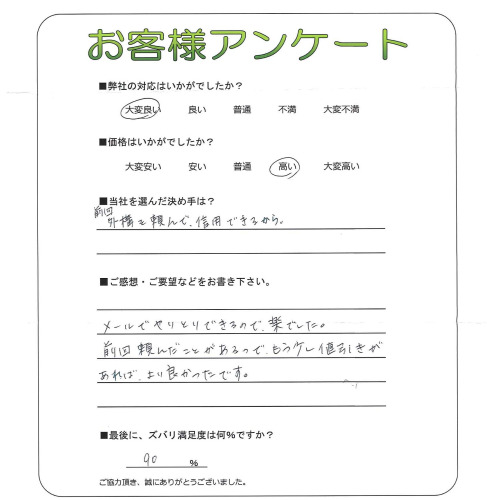 お客様アンケート
■弊社の対応はいかがでしたか？
大変良い 良い 普通 不満 大変不満
■価格はいかがでしたか？
大変安い 安い 普通 高い 大変高い
■当社を選んだ決め手は？
前回
外構を頼んで、信用できるから。
■ご感想・ご要望などをお書き下さい。
メールでやりとりできるので、楽でした。
前回頼んだことがあるので、もう少し値引きが
あれば、より良かったです。
■最後に、ズバリ満足度は何%ですか？
90 %
ご協力頂き、誠にありがとうございました。